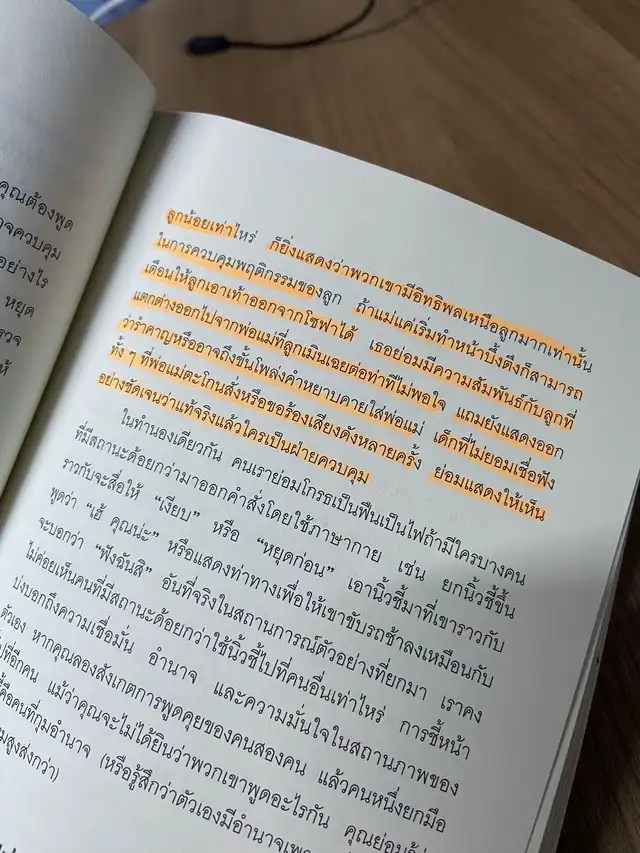 คุณต้องพูด
ควบคุม
อย่างไร
หยุด
ลูกน้อยเท่าไหร่ ก็ยิ่งแสดงว่าพวกเขามีอิทธิพลเหนือลูกมากเท่านั้น
ในการควบคุมพฤติกรรมของลูก ถ้าแม่แค่เริ่มทำหน้าบึ้งตึงก็สามารถ
เตือนให้ลูกเอาเท้าออกจากโซฟาได้ เธอย่อมมีความสัมพันธ์กับลูกที่
แตกต่างออกไปจากพ่อแม่ที่ลูกเมินเฉยต่อท่าทีไม่พอใจ แถมยังแสดงออก
ว่ารำคาญหรืออาจถึงขั้นโพล่งคำหยาบคายใส่พ่อแม่ เด็กที่ไม่ยอมเชื่อฟัง
ทั้ง ๆ ที่พ่อแม่ตะโกนสั่งหรือขอร้องเสียงดังหลายครั้ง ย่อมแสดงให้เห็น
อย่างชัดเจนว่าแท้จริงแล้วใครเป็นฝ่ายควบคุม
ในทำนองเดียวกัน คนเราย่อมโกรธเป็นฟืนเป็นไฟถ้ามีใครบางคน
ที่มีสถานะด้อยกว่ามาออกคำสั่งโดยใช้ภาษากาย เช่น ยกนิ้วชี้ขึ้น
ราวกับจะสื่อให้ “เงียบ” หรือ “หยุดก่อน” เอานิ้วชี้มาที่เขาราวกับ
พูดว่า “เฮ้ คุณน่ะ” หรือแสดงท่าทางเพื่อให้เขาขับรถช้าลงเหมือนกับ
จะบอกว่า “ฟังฉันสิ” อันที่จริงในสถานการณ์ตัวอย่างที่ยกมา เราคง
ไม่ค่อยเห็นคนที่มีสถานะด้อยกว่าใช้นิ้วชี้ไปที่คนอื่นเท่าไหร่ การชี้หน้า
บ่งบอกถึงความเชื่อมั่น อำนาจ และความมั่นใจในสถานภาพของ
ตัวเอง หากคุณลองสังเกตการพูดคุยของคนสองคน แล้วคนหนึ่งยกมือ
ที่อีกคน แม้ว่าคุณจะไม่ได้ยินว่าพวกเขาพูดอะไรกัน คุณย่อมรู้
คือคนที่กุมอำนาจ (หรือรู้สึกว่าตัวเองมีอำนาจ
สูงส่งกว่า)